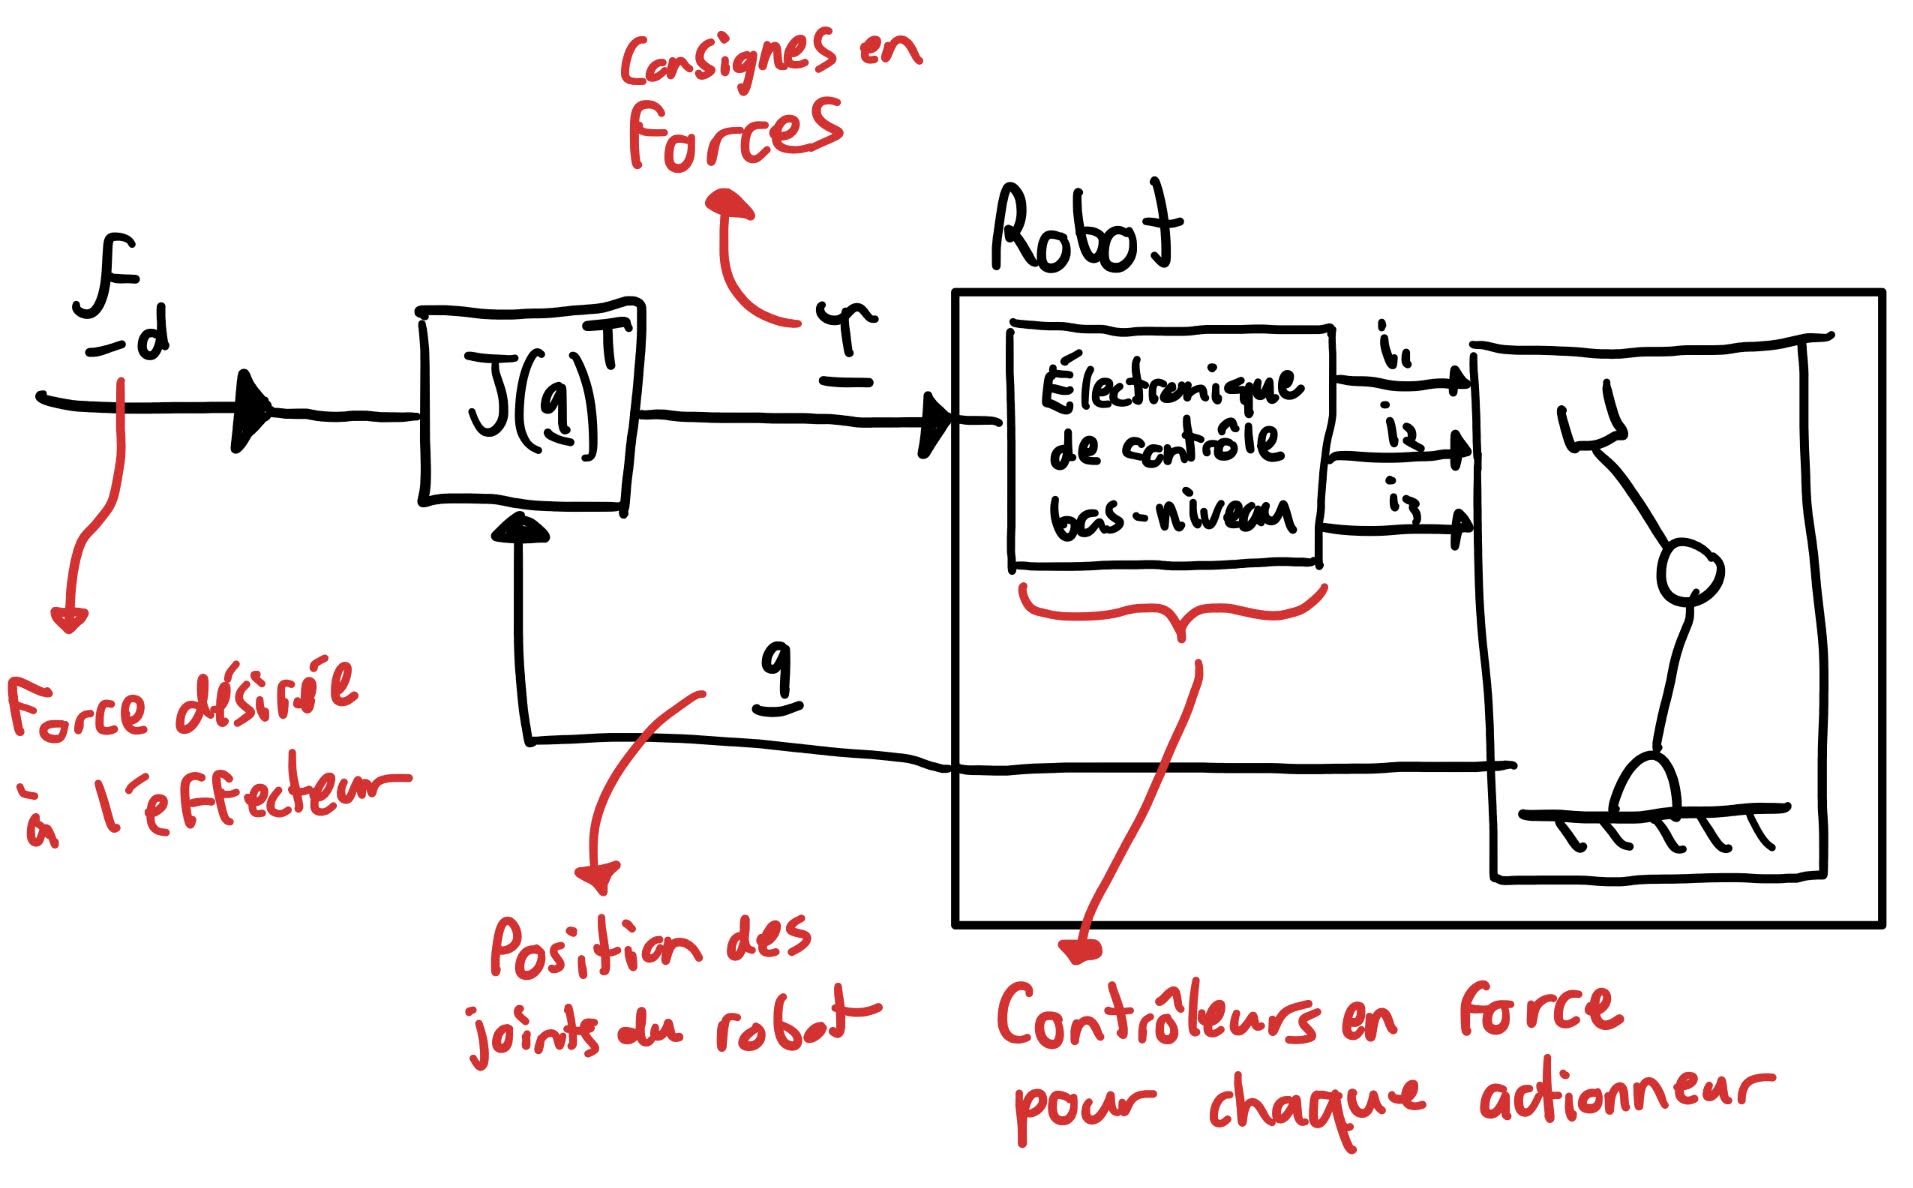 Consignes en
Forces
F_d
J(q)^T
τ
Robot
Électronique
de contrôle
bas-niveau
i₁
i₂
i₃
q
Force désirée
à l'effecteur
Position des
joints du robot
Contrôleurs en force
pour chaque actionneur